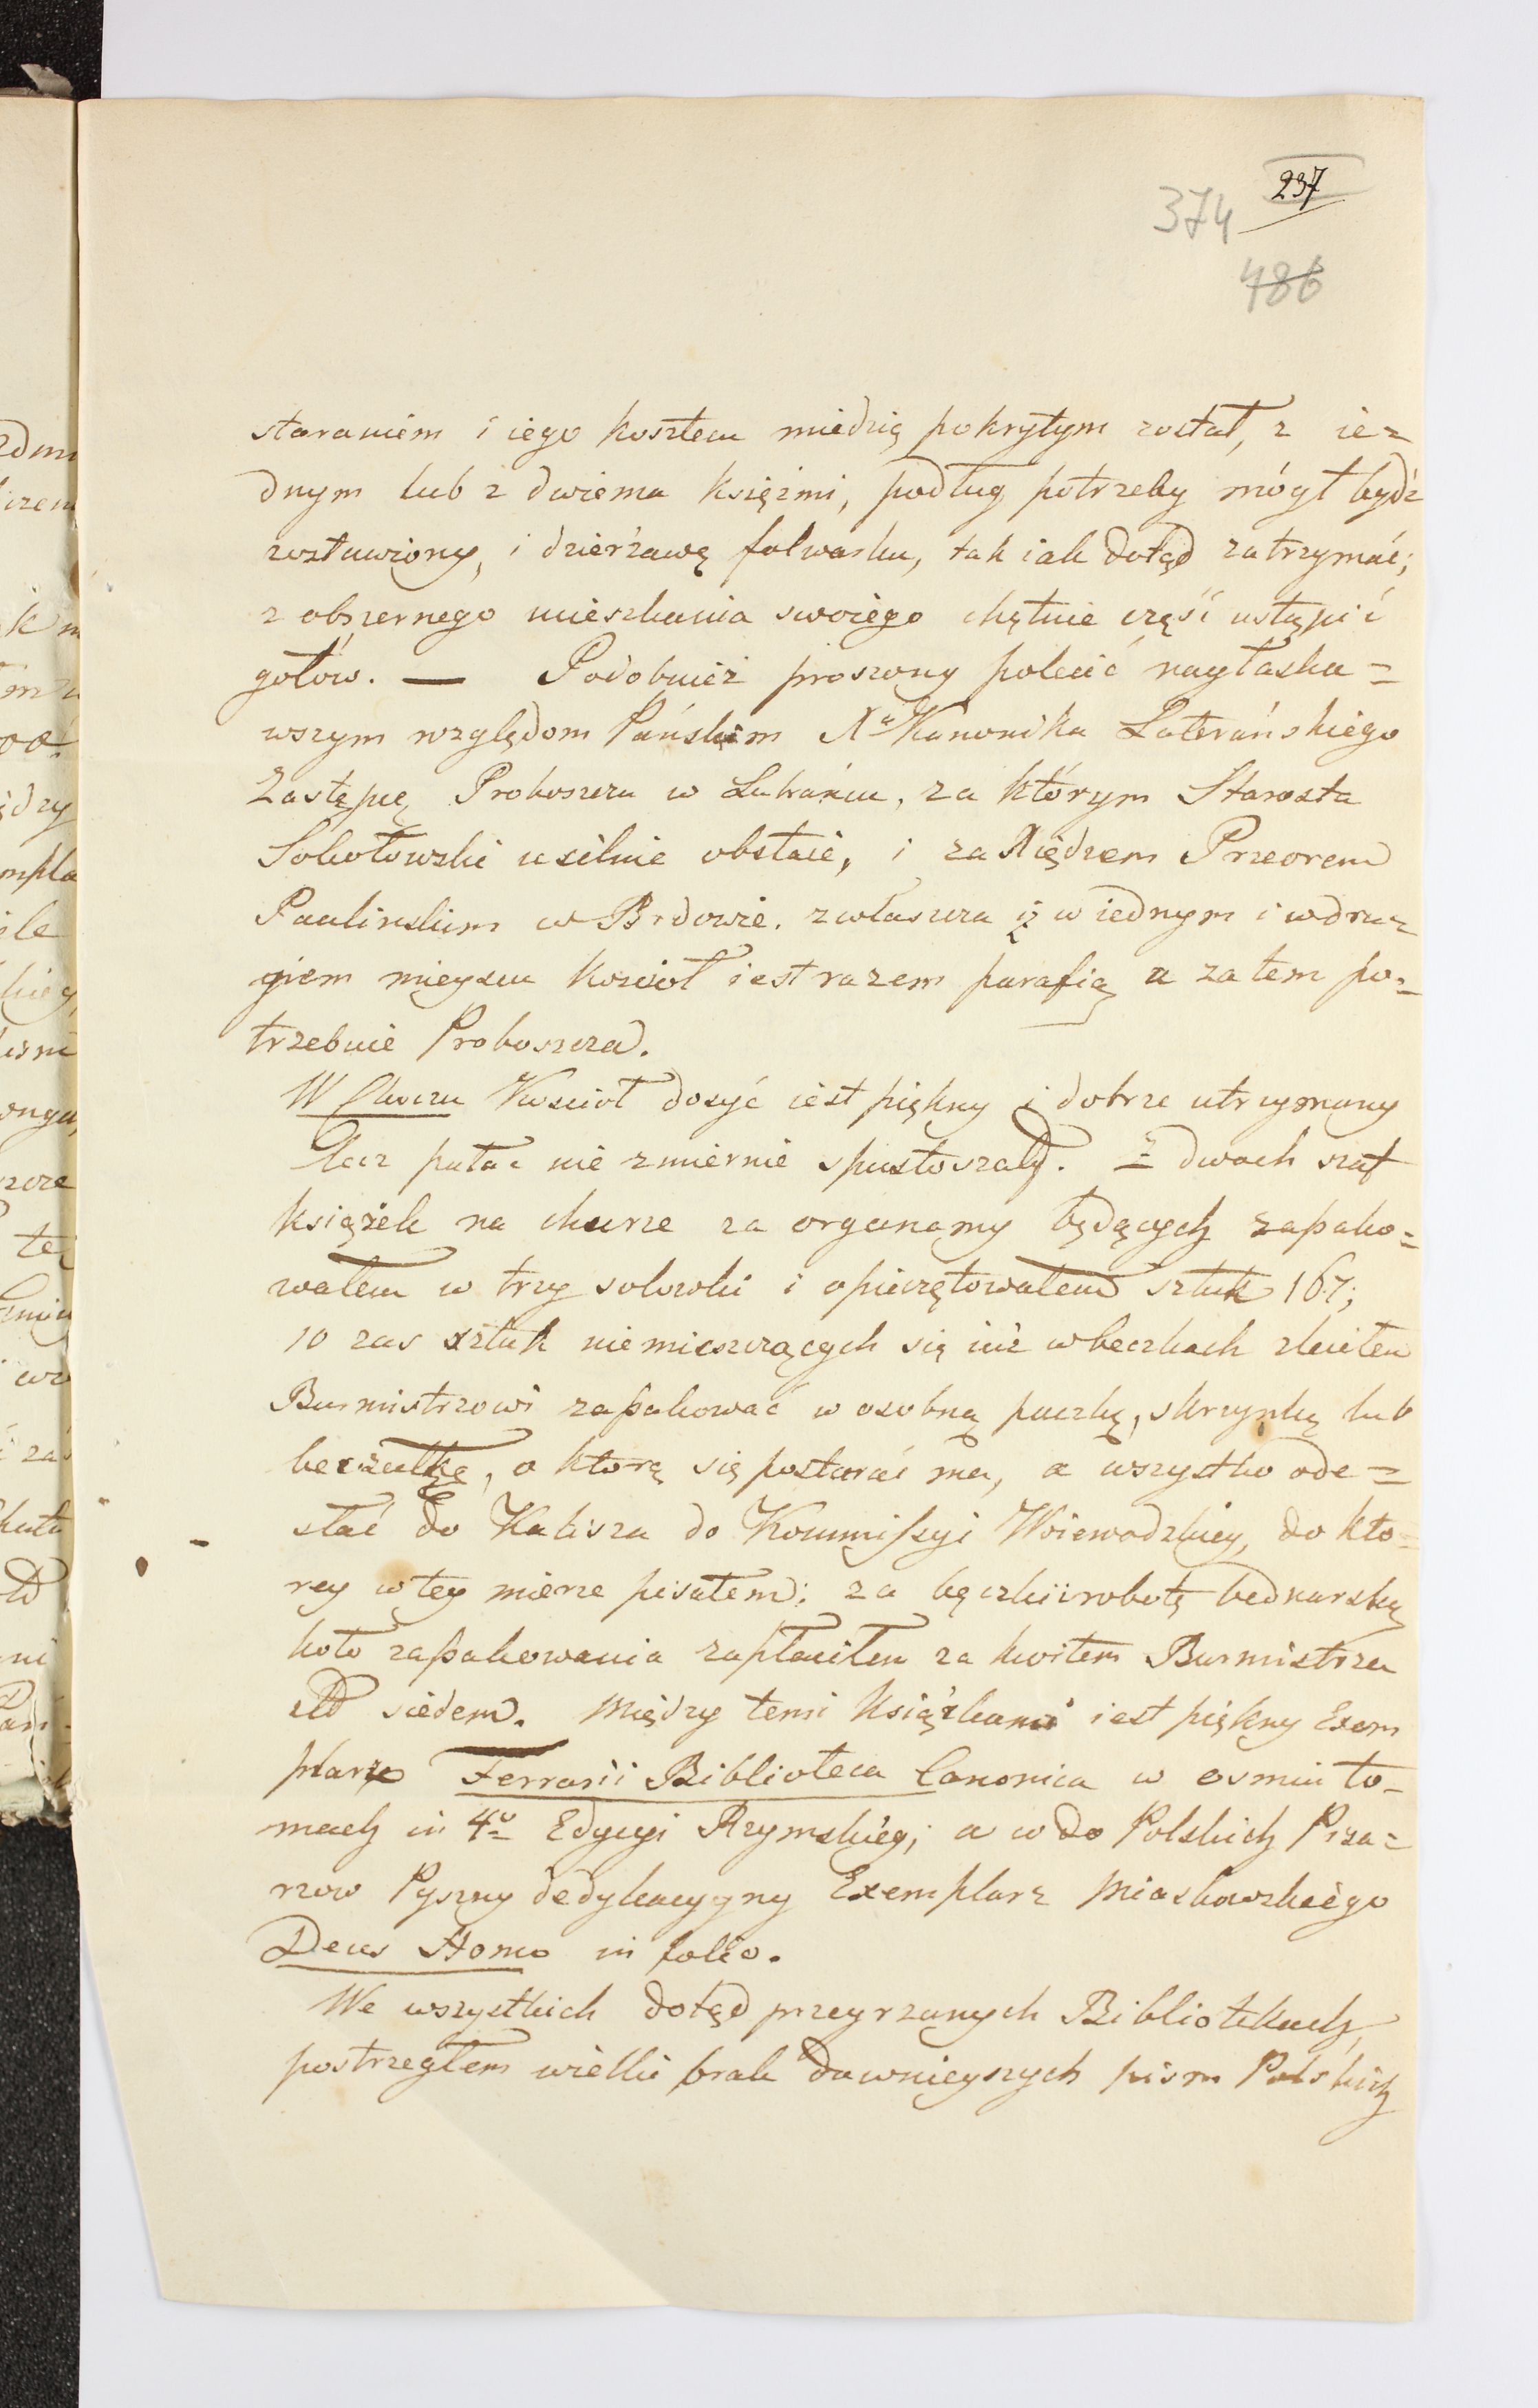 237
374
486
staraniem i iego kosztem miedzią pokrytym został, z ie=
dnym lub z dwiema księżmi, podług potrzeby mógł bydź
zostawiony, i dzierżawę folwarku, tak iak dotąd zatrzymać;
z obszernego mieszkania swoiego chętnie część ustąpić
gotów. — Podobnież proszony polecić nayłaska=
wszym względom Pańskim Xa Kanonika Laterańskiego
Zastępcę Proboszcza w Lubrańcu, za którym Starosta
Sokołowski usilnie obstaie, i za Xiędzem Przeorem
Paulińskim w Brdowie, zwłaszcza iż w iednym i w dru=
giem mieyscu kościoł iest razem parafią a zatem po=
trzebuie Proboszcza.
W Choczu Kościoł dosyć iest piękny i dobrze utrzymany
lecz pałac niezmiernie spustoszały. = dwoch szaf
książek na chorze za organamy będących zapako=
wałem w trzy solowki i opieczętowałem sztuk 167;
10 zas sztuk niemieszczących się iuż w beczkach zleciłem
Burmistrzowi zapakować w osobną paczkę, skrzynkę lub
beczułkę, o ktorą się postarać ma, a wszystko ode=
słać do Kalisza do Kommissyi Woiewodzkiey, do kto=
rey w tey mierze pisałem; za beczki i robotę bednarską
koło zapakowania zapłaciłem za kwitem Burmistrza
siedem. Między temi książkami iest piękny Exem
plarz Ferrarii Biblioteca Canonica w osmiu to=
mach in 4o Edycyi Rzymskiey; a w do Polskich Pisa=
rzow Pyszny dedykacyyny Exemplarz Miaskowskiego
Deus Homo in folio.
We wszystkich dotąd przeyrzanych Bibliotekach
postrzegłem wielki brak dawnieyszych pism Polskich